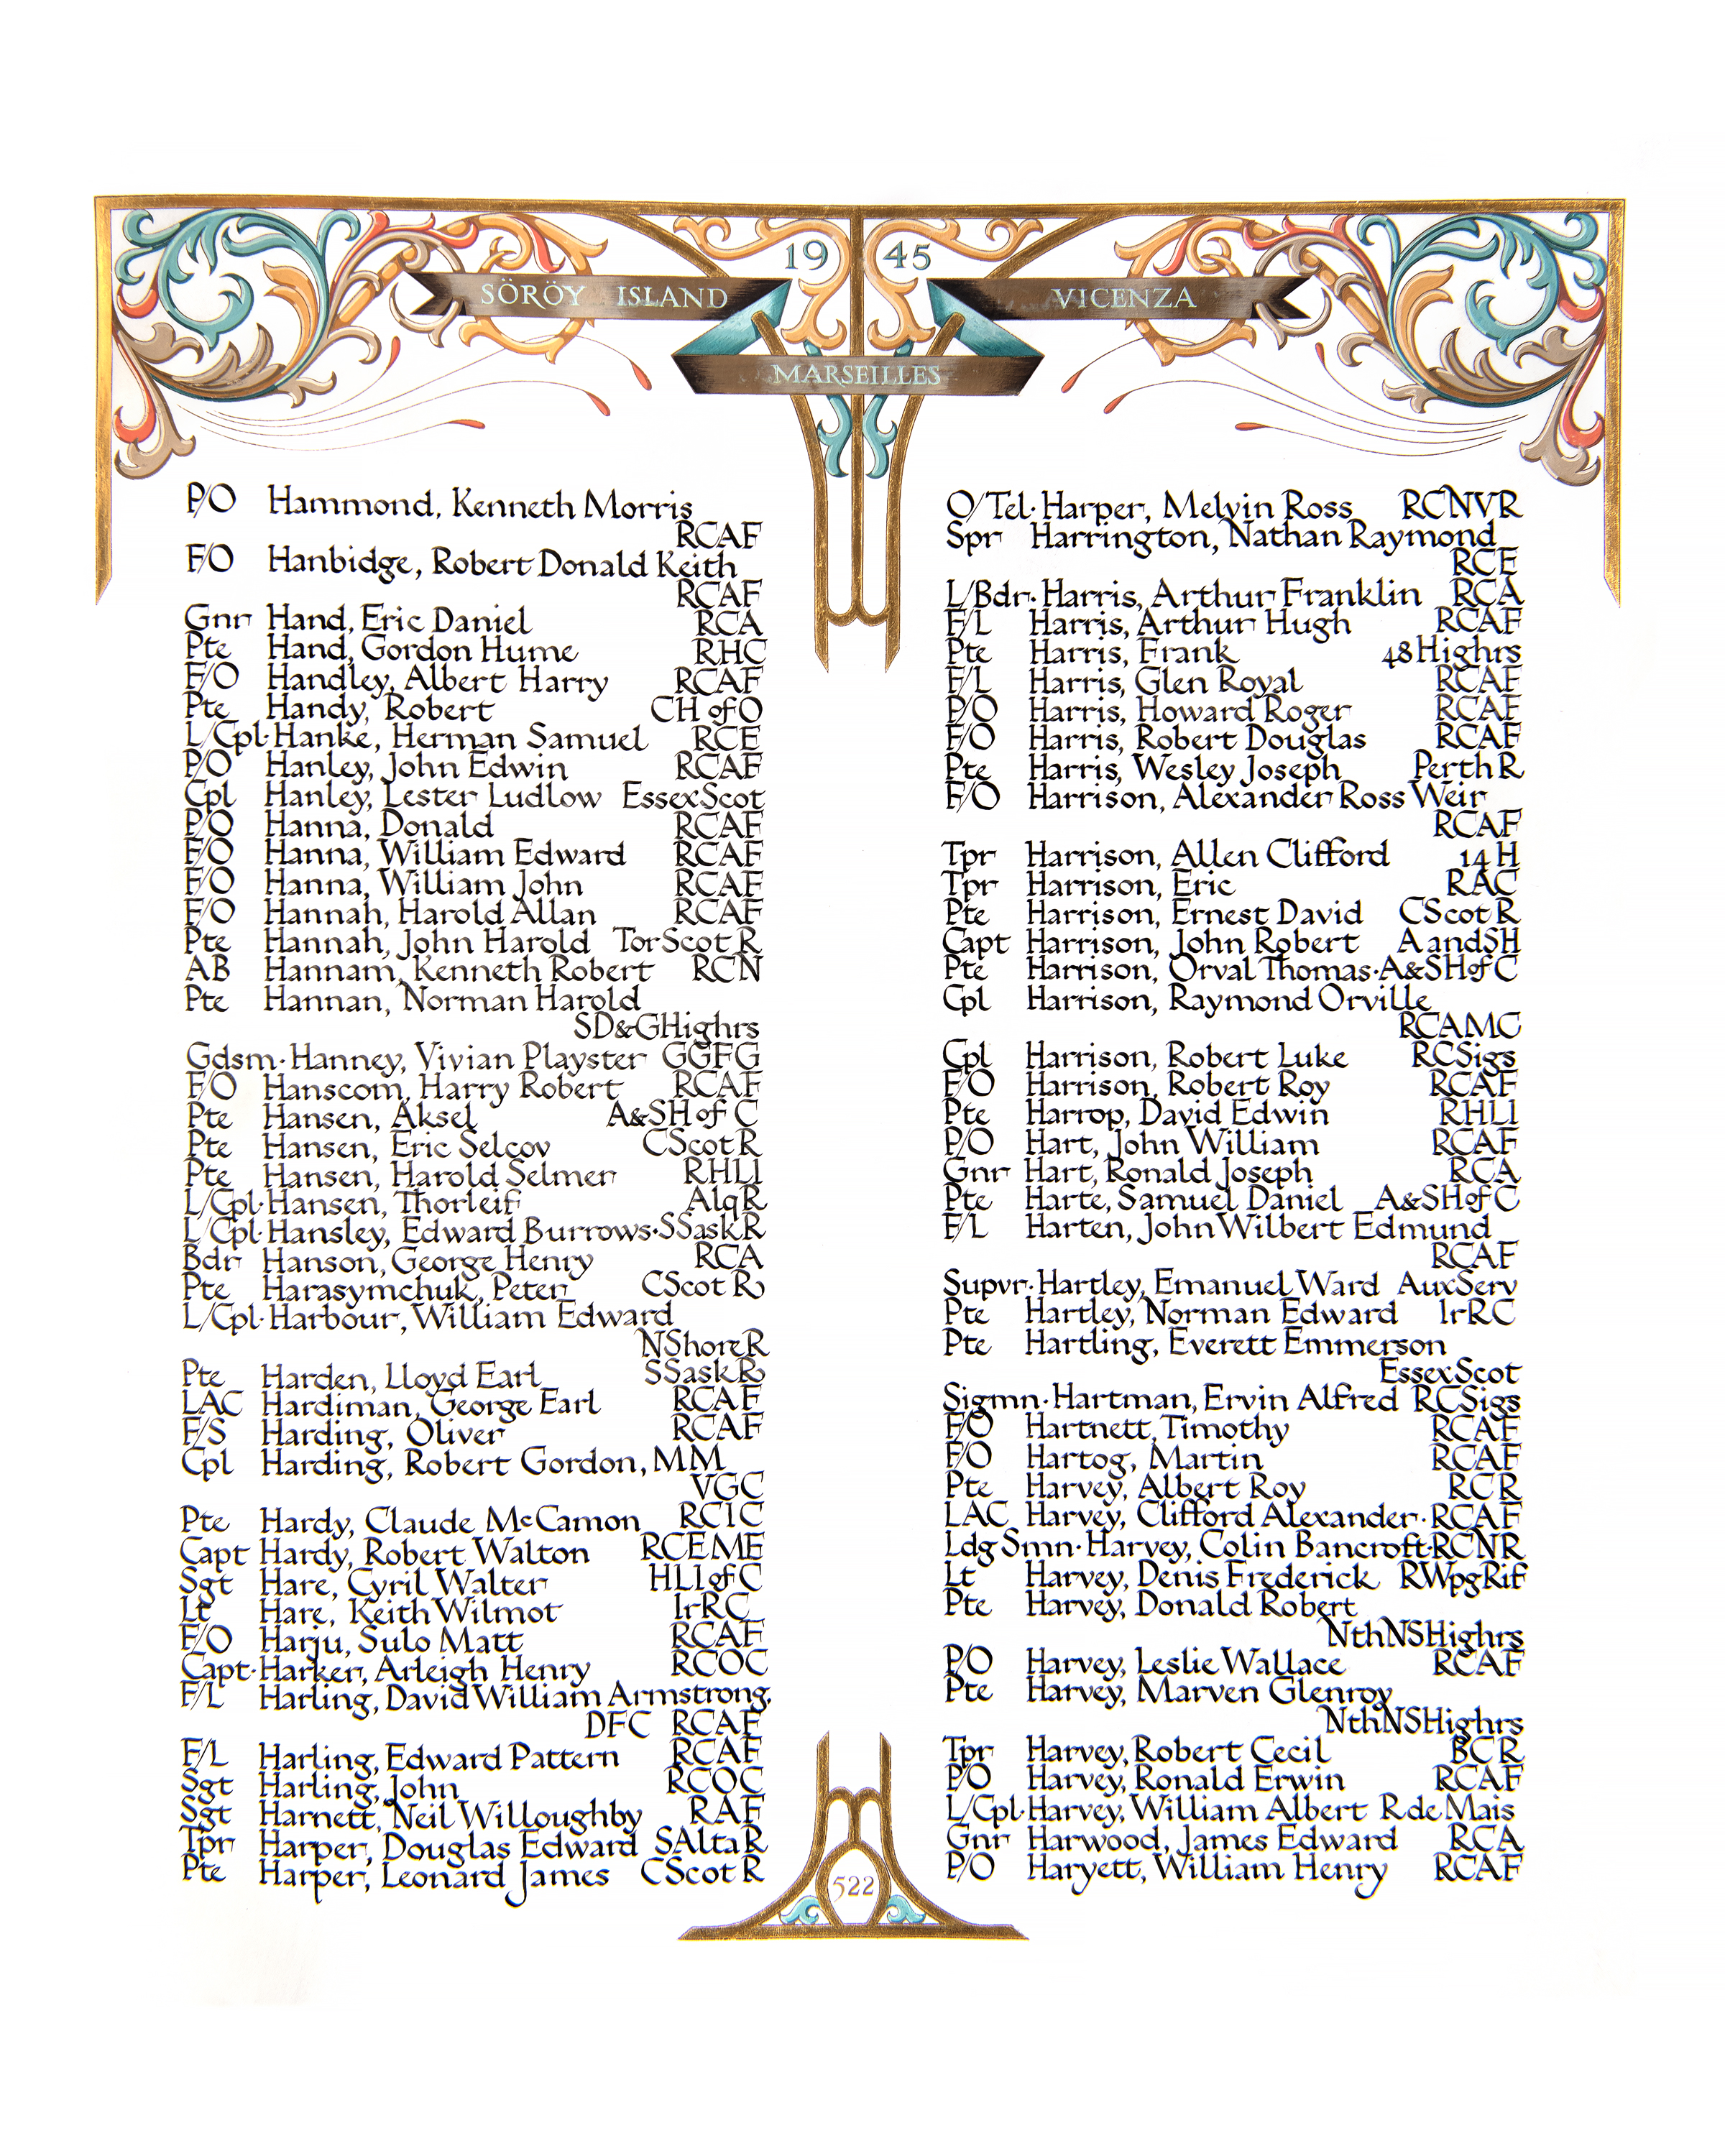 19 45
SÖRÖY ISLAND
VICENZA
MARSEILLES
P/O Hammond, Kenneth Morris
RCAF
F/O Hanbidge, Robert Donald Keith
RCAF
Gnr Hand, Eric Daniel RCA
Pte Hand, Gordon Hume RHC
F/O Handley, Albert Harry RCAF
Pte Handy, Robert CH of O
L/Cpl·Hanke, Herman Samuel RCE
P/O Hanley, John Edwin RCAF
Cpl Hanley, Lester Ludlow EssexScot
P/O Hanna, Donald RCAF
F/O Hanna, William Edward RCAF
F/O Hanna, William John RCAF
F/O Hannah, Harold Allan RCAF
Pte Hannah, John Harold TorScot R
AB Hannam, Kenneth Robert RCN
Pte Hannan, Norman Harold
SD&GHighrs
Gdsm·Hanney, Vivian Playster GGFG
F/O Hanscom, Harry Robert RCAF
Pte Hansen, Aksel A&SH of C
Pte Hansen, Eric Selcov CScot R
Pte Hansen, Harold Selmer RHLI
L/Cpl·Hansen, Thorleif AlqR
L/Cpl·Hansley, Edward Burrows·SSaskR
Bdr Hanson, George Henry RCA
Pte Harasymchuk, Peter CScot R
L/Cpl·Harbour, William Edward
NShoreR
Pte Harden, Lloyd Earl SSaskR
LAC Hardiman, George Earl RCAF
F/S Harding, Oliver RCAF
Cpl Harding, Robert Gordon, MM
VGC
Pte Hardy, Claude McCamon RCIC
Capt Hardy, Robert Walton RCEME
Sgt Hare, Cyril Walter HLIofC
Lt Hare, Keith Wilmot IrRC
F/O Harju, Sulo Matt RCAF
Capt·Harker, Arleigh Henry RCOC
F/L Harling, David William Armstrong,
DFC RCAF
F/L Harling, Edward Pattern RCAF
Sgt Harling, John RCOC
Sgt Harnett, Neil Willoughby RAF
Tpr Harper, Douglas Edward SAltaR
Pte Harper, Leonard James CScot R
O/Tel·Harper, Melvin Ross RCNVR
Spr Harrington, Nathan Raymond
RCE
L/Bdr·Harris, Arthur Franklin RCA
F/L Harris, Arthur Hugh RCAF
Pte Harris, Frank 48Highrs
F/L Harris, Glen Royal RCAF
P/O Harris, Howard Roger RCAF
F/O Harris, Robert Douglas RCAF
Pte Harris, Wesley Joseph Perth R
F/O Harrison, Alexander Ross Weir
RCAF
Tpr Harrison, Allen Clifford 14 H
Tpr Harrison, Eric RAC
Pte Harrison, Ernest David CScot R
Capt Harrison, John Robert A andSH
Pte Harrison, Orval Thomas·A&SHofC
Cpl Harrison, Raymond Orville
RCAMC
Cpl Harrison, Robert Luke RCSigs
F/O Harrison, Robert Roy RCAF
Pte Harrop, David Edwin RHLI
P/O Hart, John William RCAF
Gnr Hart, Ronald Joseph RCA
Pte Harte, Samuel Daniel A&SHofC
F/L Harten, John Wilbert Edmund
RCAF
Supvr·Hartley, Emanuel Ward AuxServ
Pte Hartley, Norman Edward IrRC
Pte Hartling, Everett Emmerson
EssexScot
Sigmn·Hartman, Ervin Alfred RCSigs
F/O Hartnett, Timothy RCAF
F/O Hartog, Martin RCAF
Pte Harvey, Albert Roy RCR
LAC Harvey, Clifford Alexander·RCAF
Ldg Smn·Harvey, Colin Bancroft·RCNR
Lt Harvey, Denis Frederick RWpgRif
Pte Harvey, Donald Robert
NthNSHighrs
P/O Harvey, Leslie Wallace RCAF
Pte Harvey, Marven Glenroy
NthNSHighrs
Tpr Harvey, Robert Cecil BCR
P/O Harvey, Ronald Erwin RCAF
L/Cpl·Harvey, William Albert R de Mais
Gnr Harwood, James Edward RCA
P/O Haryett, William Henry RCAF
522